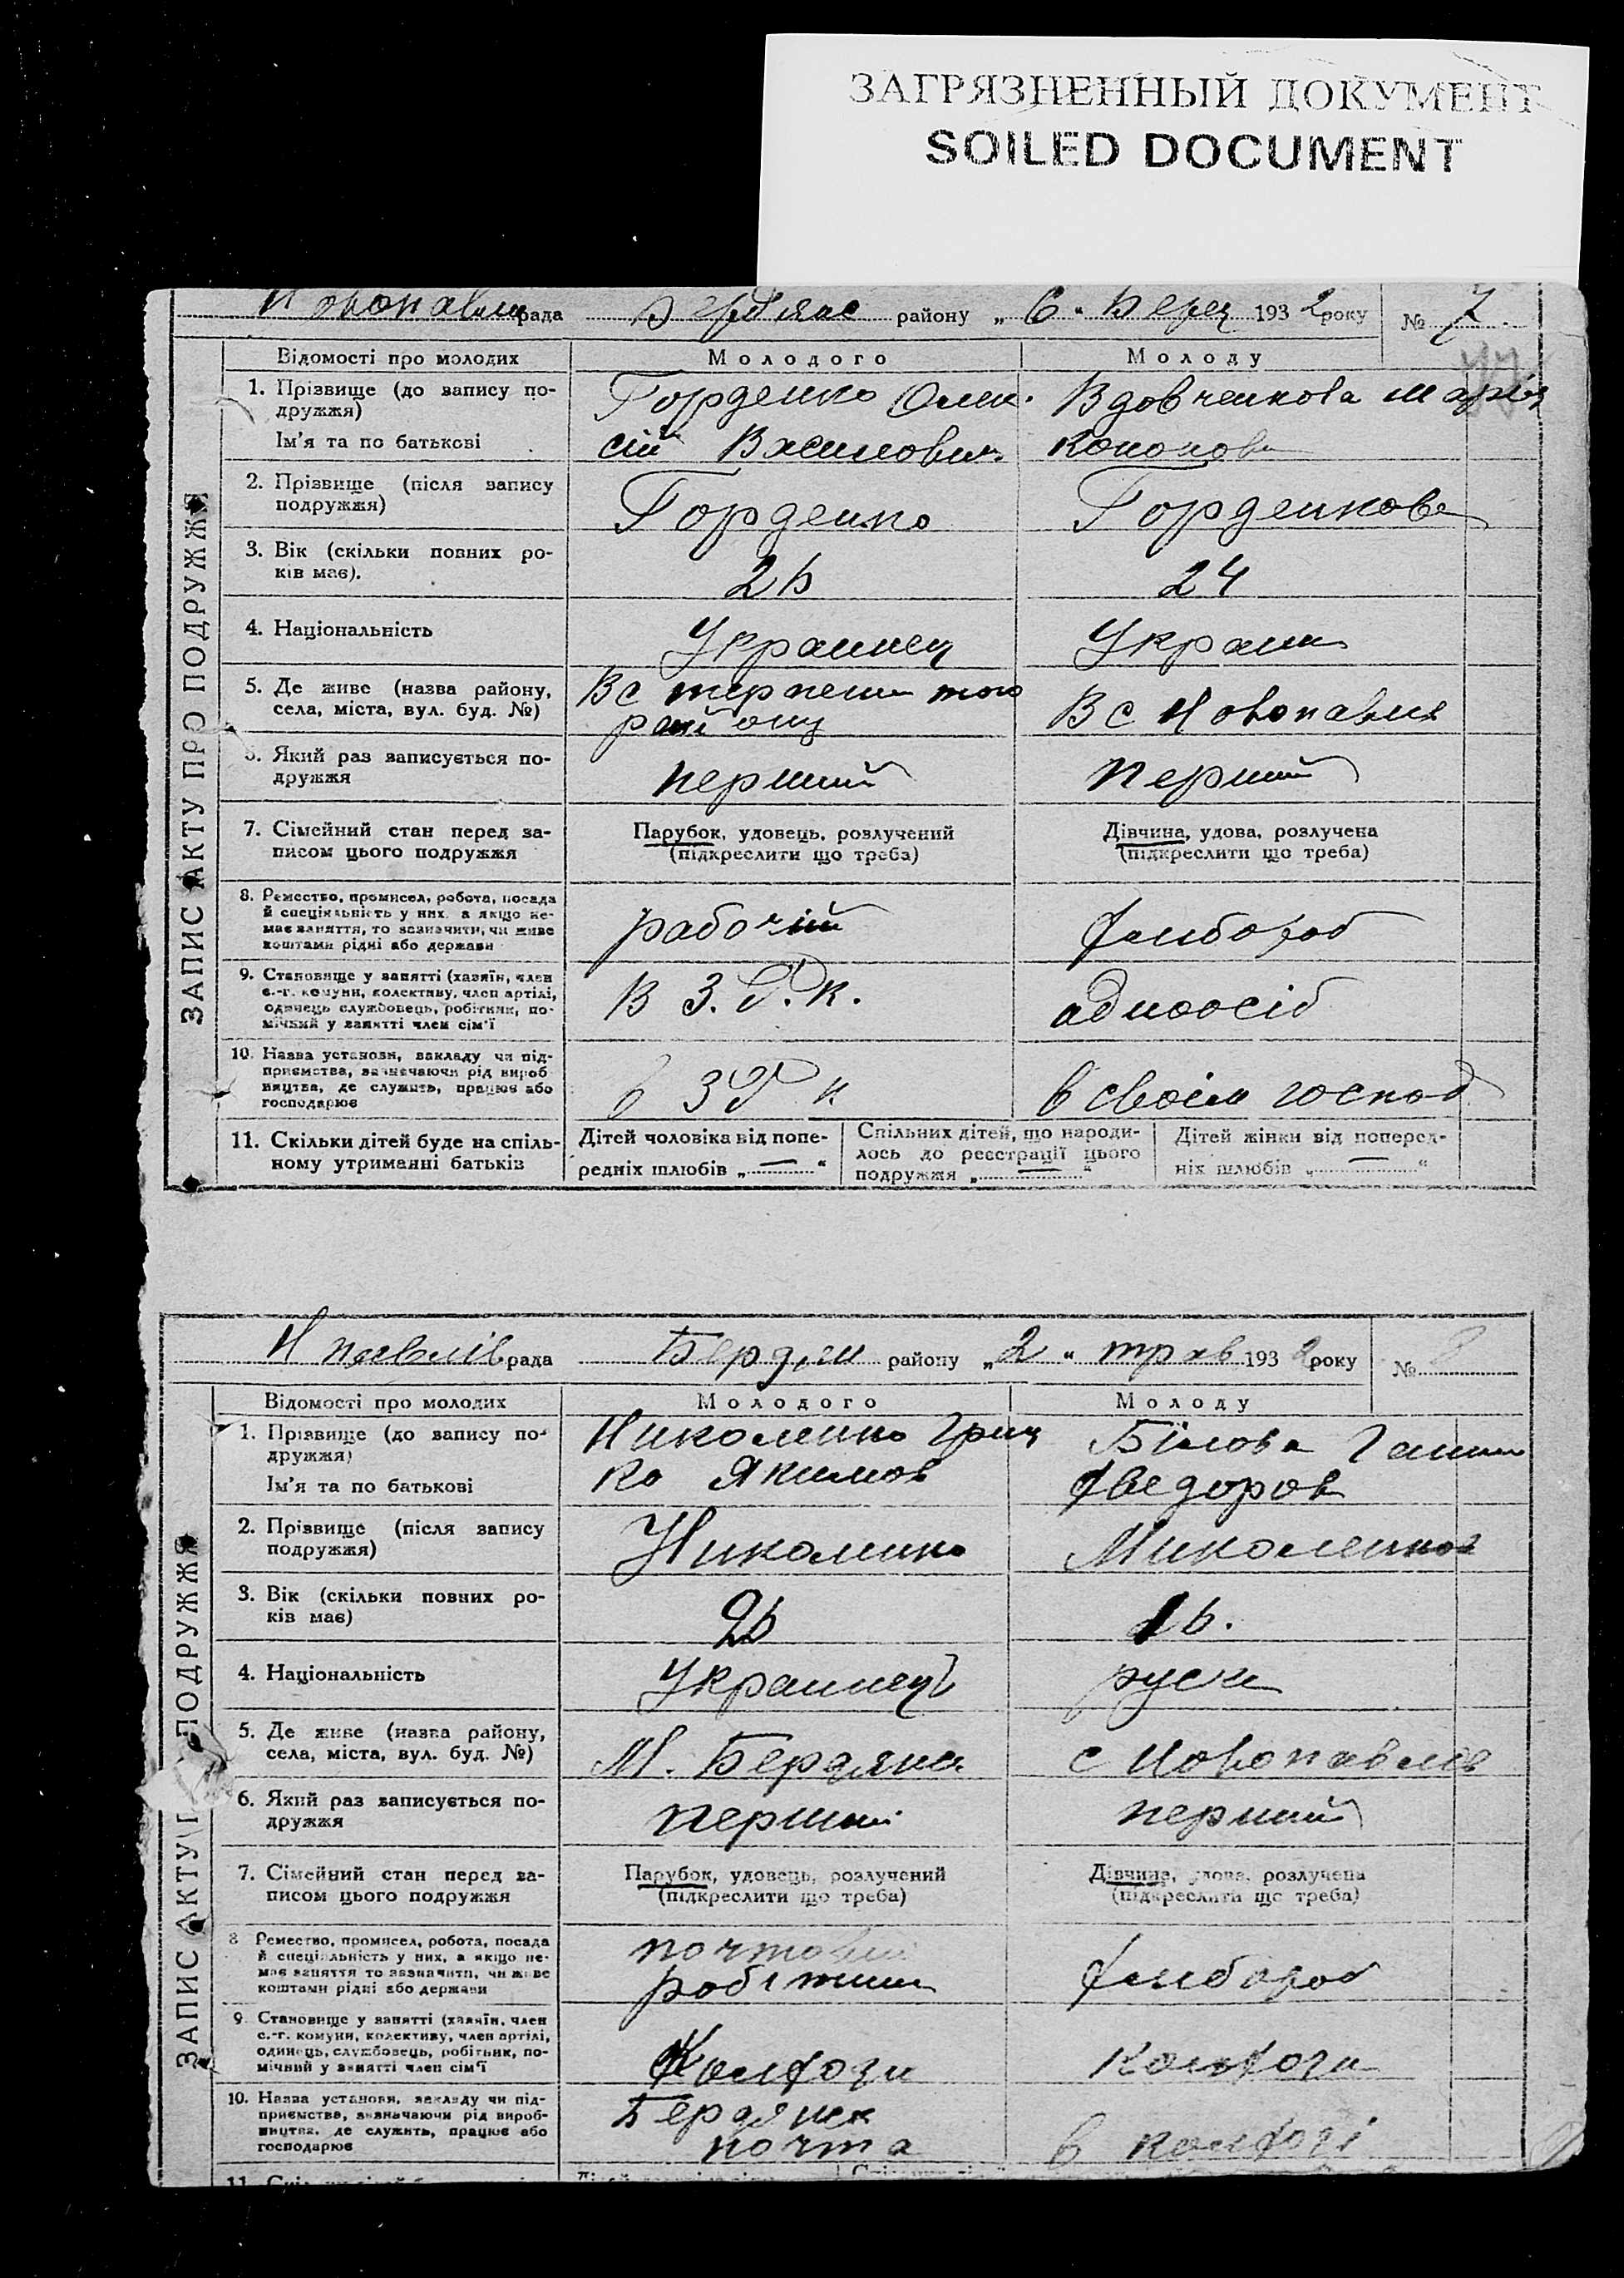 ЗАГРЯЗНЕННЫЙ ДОКУМЕНТ
SOILED DOCUMENT
рада району „ 6 “ Берез 1932 року № 7
ЗАПИС АКТУ ПРО ПОДРУЖЖЯ
Відомості про молодих Молодого Молоду
1. Прізвище (до запису по-
дружжя)
Ім'я та по батькові
Горденко Олек-
сій Васильович
Вдовченкова Марія
Кононов
2. Прізвище (після запису
подружжя)
Горденко Горденкова
3. Вік (скільки повних ро-
ків має).
26 24
4. Національність
Украинец Украин
5. Де живе (назва району,
села, міста, вул. буд. №)
В с того
району
В с Новопавлів
6. Який раз записується по-
дружжя
перший перший
7. Сімейний стан перед за-
писом цього подружжя
Парубок, удовець, розлучений
(підкреслити що треба)
Дівчина, удова, розлучена
(підкреслити що треба)
8. Ремество, промисел, робота, посада
й спеціяльність у них, а якщо не-
має заняття, то зазначити, чи живе
коштами рідні або держави
рабочій хлібороб
9. Становище у занятті (хазяїн, член
с.-г. комуни, колективу, член артілі,
одинець службовець, робітник, по-
мічний у занятті член сім'ї
В З. Р. К. адноосіб
10. Назва установи, закладу чи під-
приємства, зазначаючи рід вироб-
ництва, де служить, працює або
господарює
в ЗРК в своїм господ
11. Скільки дітей буде на спіль-
ному утриманні батьків
Дітей чоловіка від попе-
редніх шлюбів „ — “
Спільних дітей, що народи-
лось до реєстрації цього
подружжя „ — “
Дітей жінки від поперед-
ніх шлюбів „ — “
Н павлів рада Бердян району „ 2 “ трав 1932 року №
ЗАПИС АКТУ ПОДРУЖЖЯ
Відомості про молодих Молодого Молоду
1. Прізвище (до запису по-
дружжя)
Ім'я та по батькові
Николенко Гриц
ко Якимов
Білова Ганна
Фведоров
2. Прізвище (після запису
подружжя)
Николенко Миколенков
3. Вік (скільки повних ро-
ків має)
26
4. Національність
Украинец руска
5. Де живе (назва району,
села, міста, вул. буд. №)
М. Бердянск с Новопавлів
6. Який раз записується по-
дружжя
перший перший
7. Сімейний стан перед за-
писом цього подружжя
Парубок, удовець, розлучений
(підкреслити що треба)
Дівчина, удова, розлучена
(підкреслити що треба)
8 Ремество, промисел, робота, посада
й спеціяльність у них, а якщо не-
має заняття то зазначити, чи живе
коштами рідні або держави
почтовий
робітник
хлібороб
9 Становище у занятті (хазяїн, член
с.-г. комуни, колективу, член артілі,
одинець, службовець, робітник, по-
мічний у занятті член сім'ї
10. Назва установи, закладу чи під-
приємства, зазначаючи рід вироб-
ництва, де служить, працює або
господарює
Бердянск
почта
в